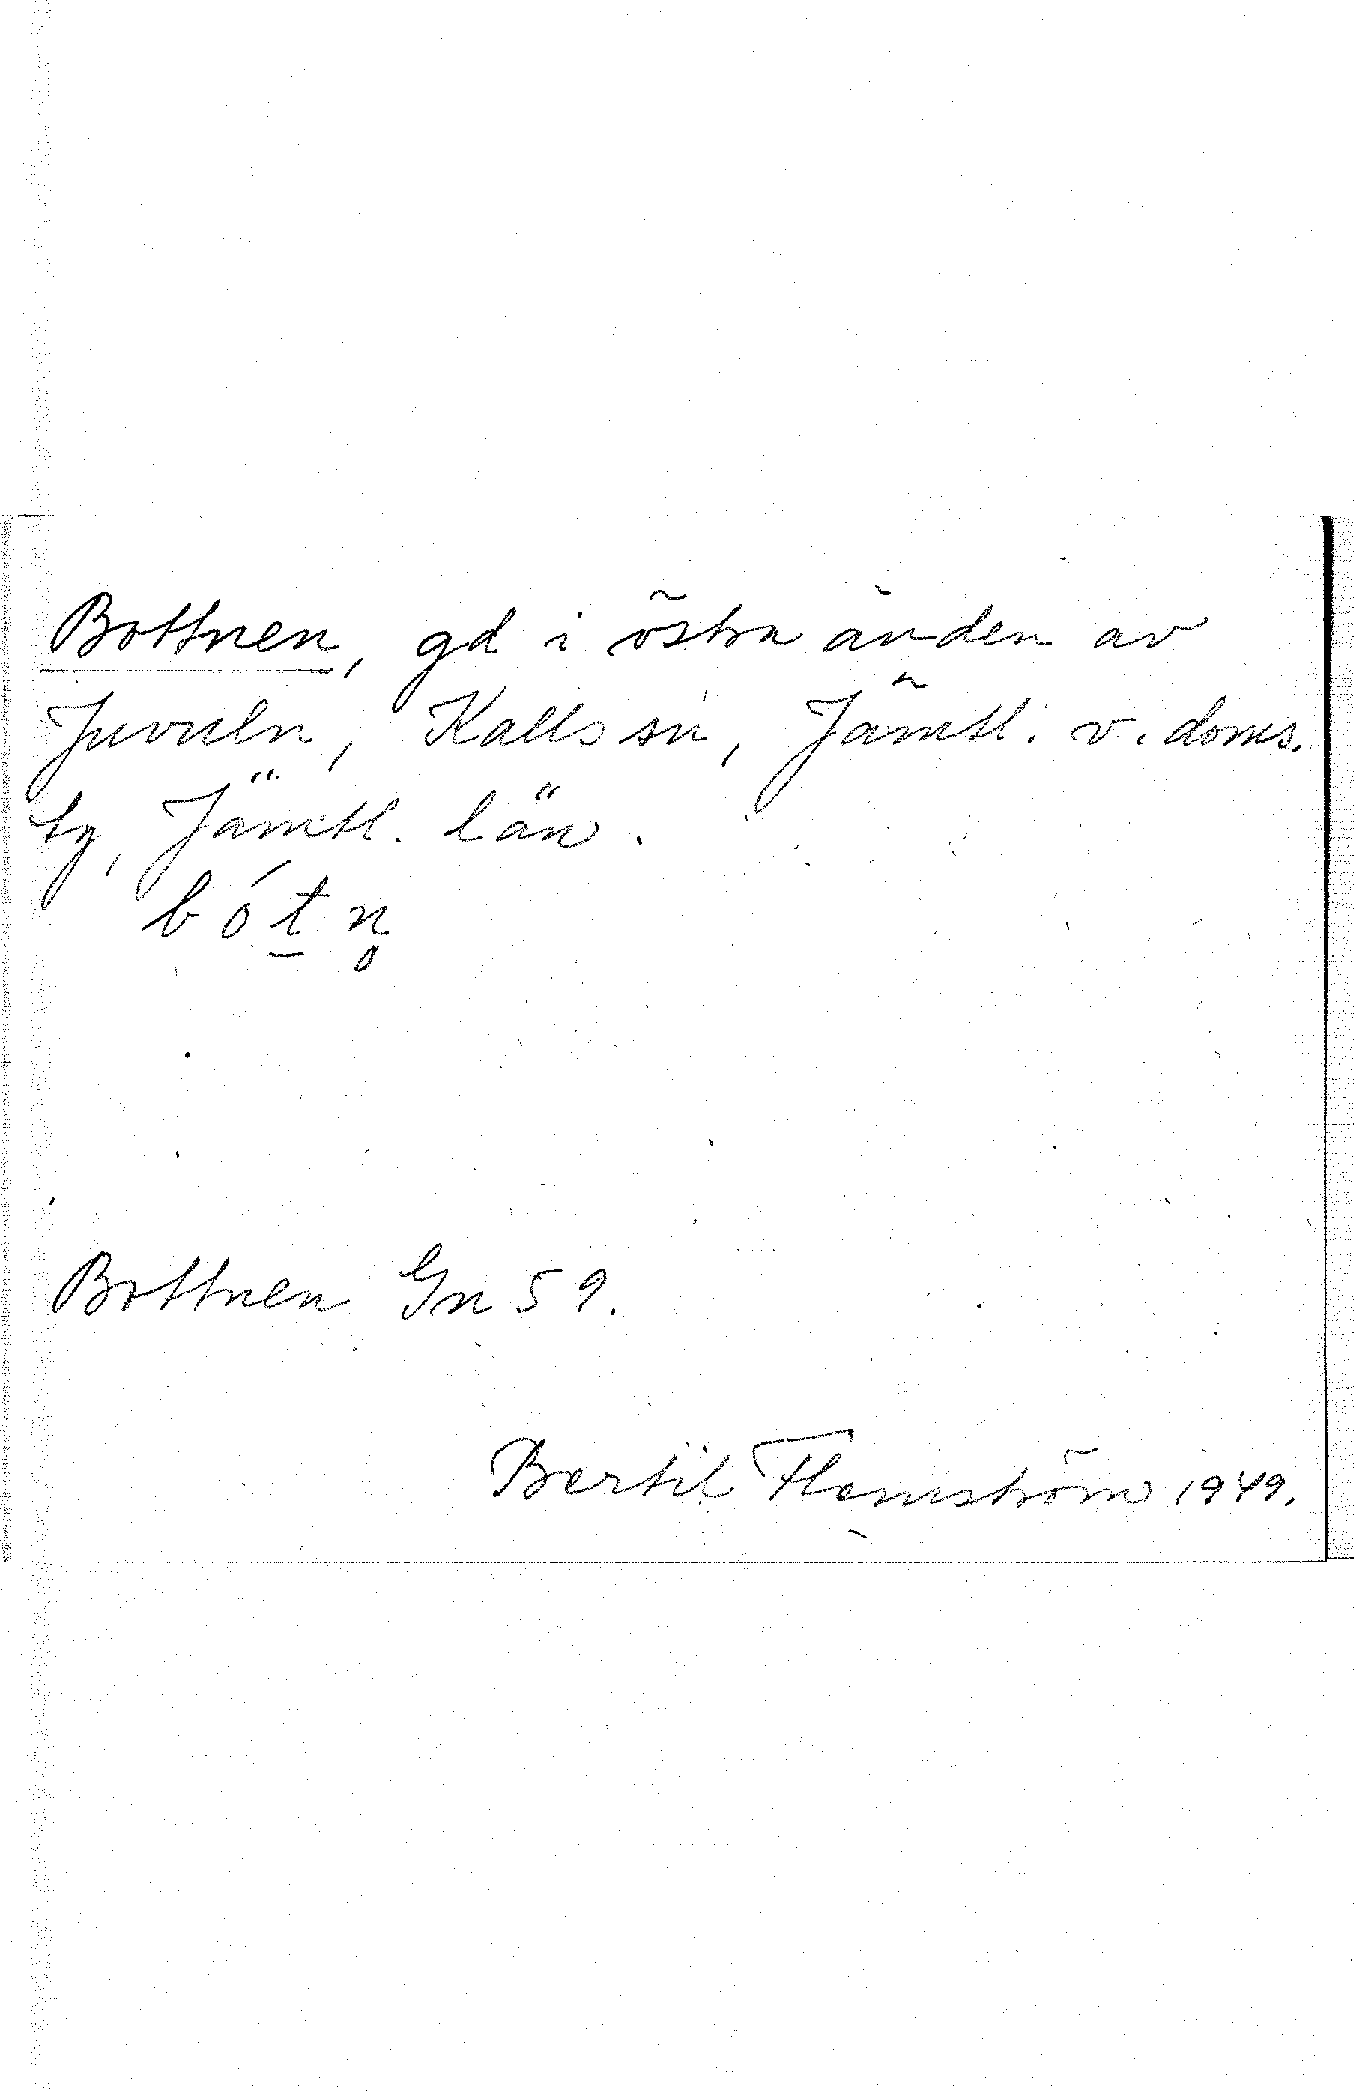 Bottnen, gd i östra änden av
Juvuln, Kalls sn, Jämtl. v. doms.
by, Jämtl. län.
bót̲n̥
Bottnen Gn 59.
Bertil Flemström 1949.